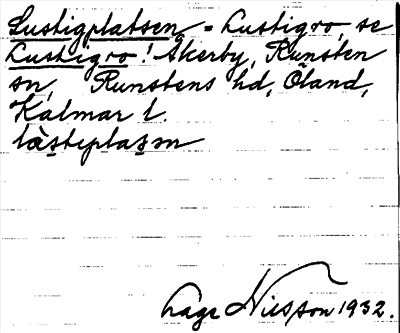 Lustigplatsen = Lustigro, se
Lustigro! Åkerby, Runsten
sn, Runstens hd, Öland,
Kalmar l.
làsteplasm
Lage Nilsson 1932.